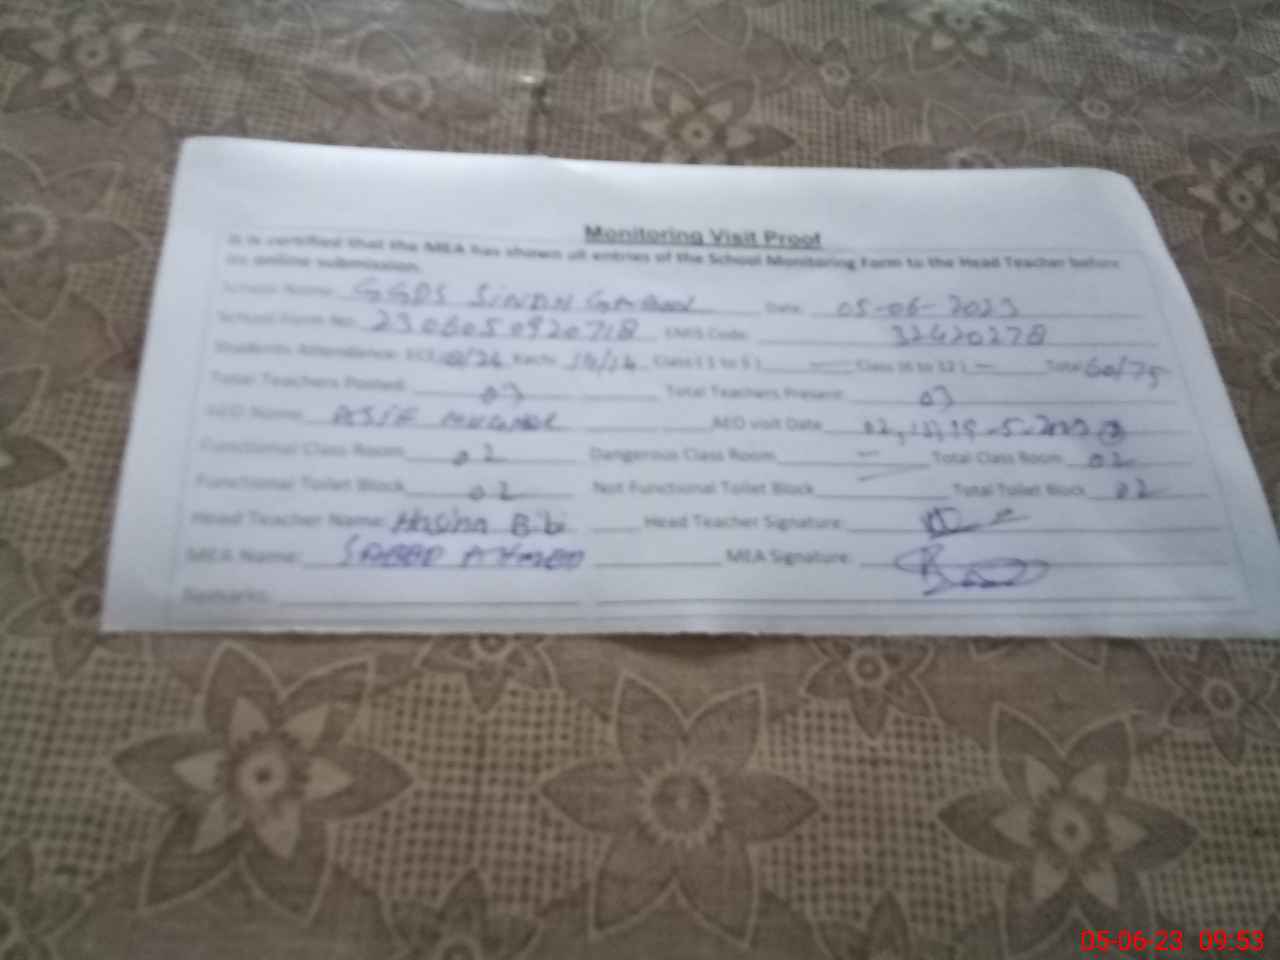 Monitoring Visit Proof
It is certified that the MEA has shown all entries of the School Monitoring Form to the Head Teacher before
its online submission.
School Name: Date: 05-06-2023
School Form No. 2306050920718 EMIS Code: 32420278
Students Attendance: ECE Kachi 14/14 Class ( 1 to 5 ) — Class (6 to 12 ) — Total 60/75
Total Teachers Posted: 03 Total Teachers Present: 03
AEO Name: AEO visit Date
Functional Class Room 02 Dangerous Class Room — Total Class Room 02
Functional Toilet Block 02 Not Functional Toilet Block — Total Toilet Block 02
Head Teacher Name: Hasina Bibi Head Teacher Signature:
MEA Name: AHMED MEA Signature:
Remarks:
05-06-23 09:53